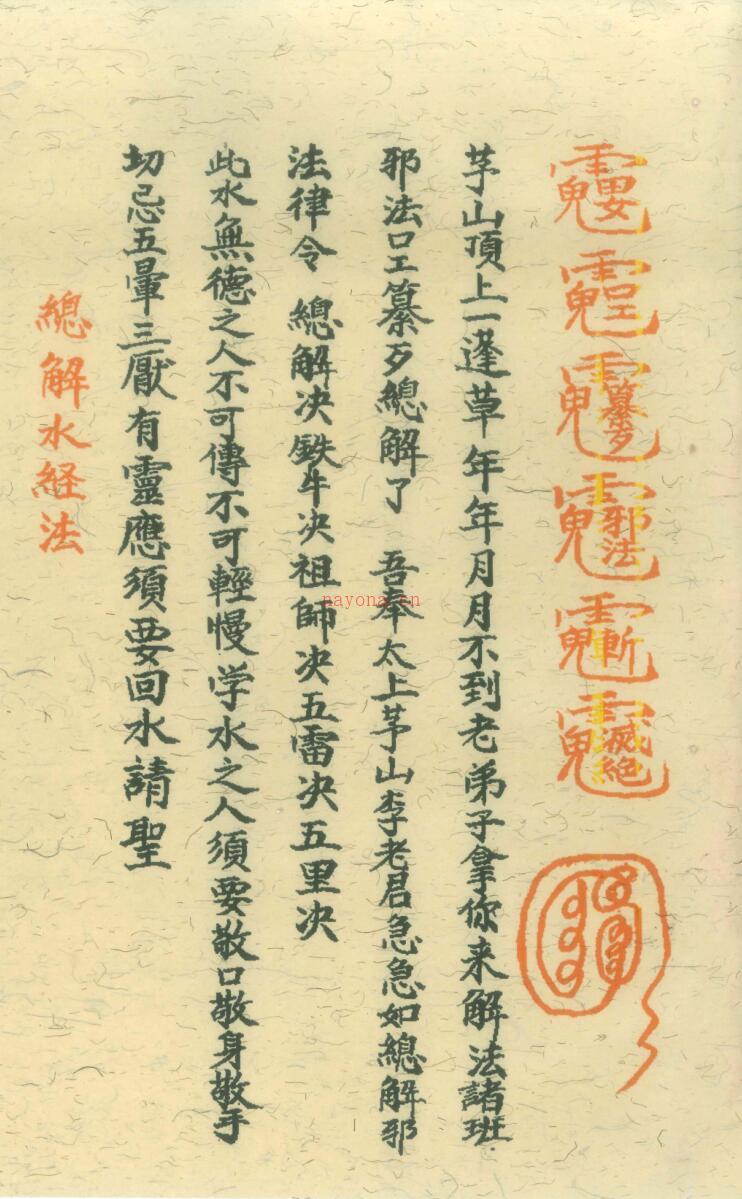 茅山頂上一蓬草年年月月不到老弟子拿你来解法諸班
邪法口工纂歹總解了 吾奉太上茅山李老君急急如總解邪
法律令 總解决鉄牛决祖師决五雷决五里决
此水無德之人不可傳不可輕慢学水之人須要敬口敬身敬手
切忌五暈三厭有靈應須要回水請聖
總解水経法
nayona.cn